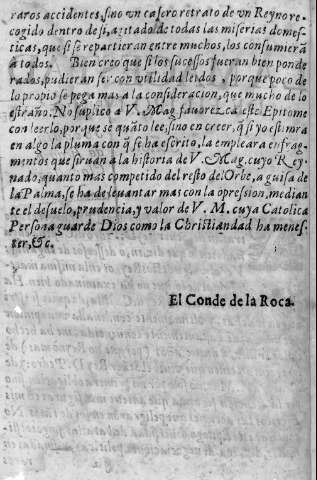 raros accidentes, sino vn casero retrato de vn Reyno re-
cogido dentro de si, agitado de todas las miserias domes-
ticas, que si se repartieran entre muchos, los consumiera
à todos. Bien creo que si los sucessos fueran bien ponde
rados, pudieran ser con vtilidad leidos, porque poco de
lo propio se pega mas a la consideracion, que mucho de lo
estraño. No suplico a V. Mag. fauorezca este Epitome
con leerlo, porque sè quãto lee, sino en creer, q̃ si yo estimra
en algo la pluma con q̃ se ha escrito, la empleara en frag-
mentos que siruan a la historia de V. Mag. cuyo Rey-
nado, quanto mas competido del resto del Orbe, a guisa de
la Palma, se ha de leuantar mas con la opression, median
te el desuelo, prudencia, y valor de V. M. cuya Catolica
Persona guarde Dios como la Christiandad ha menes-
ter, &c.
El Conde de la Roca.